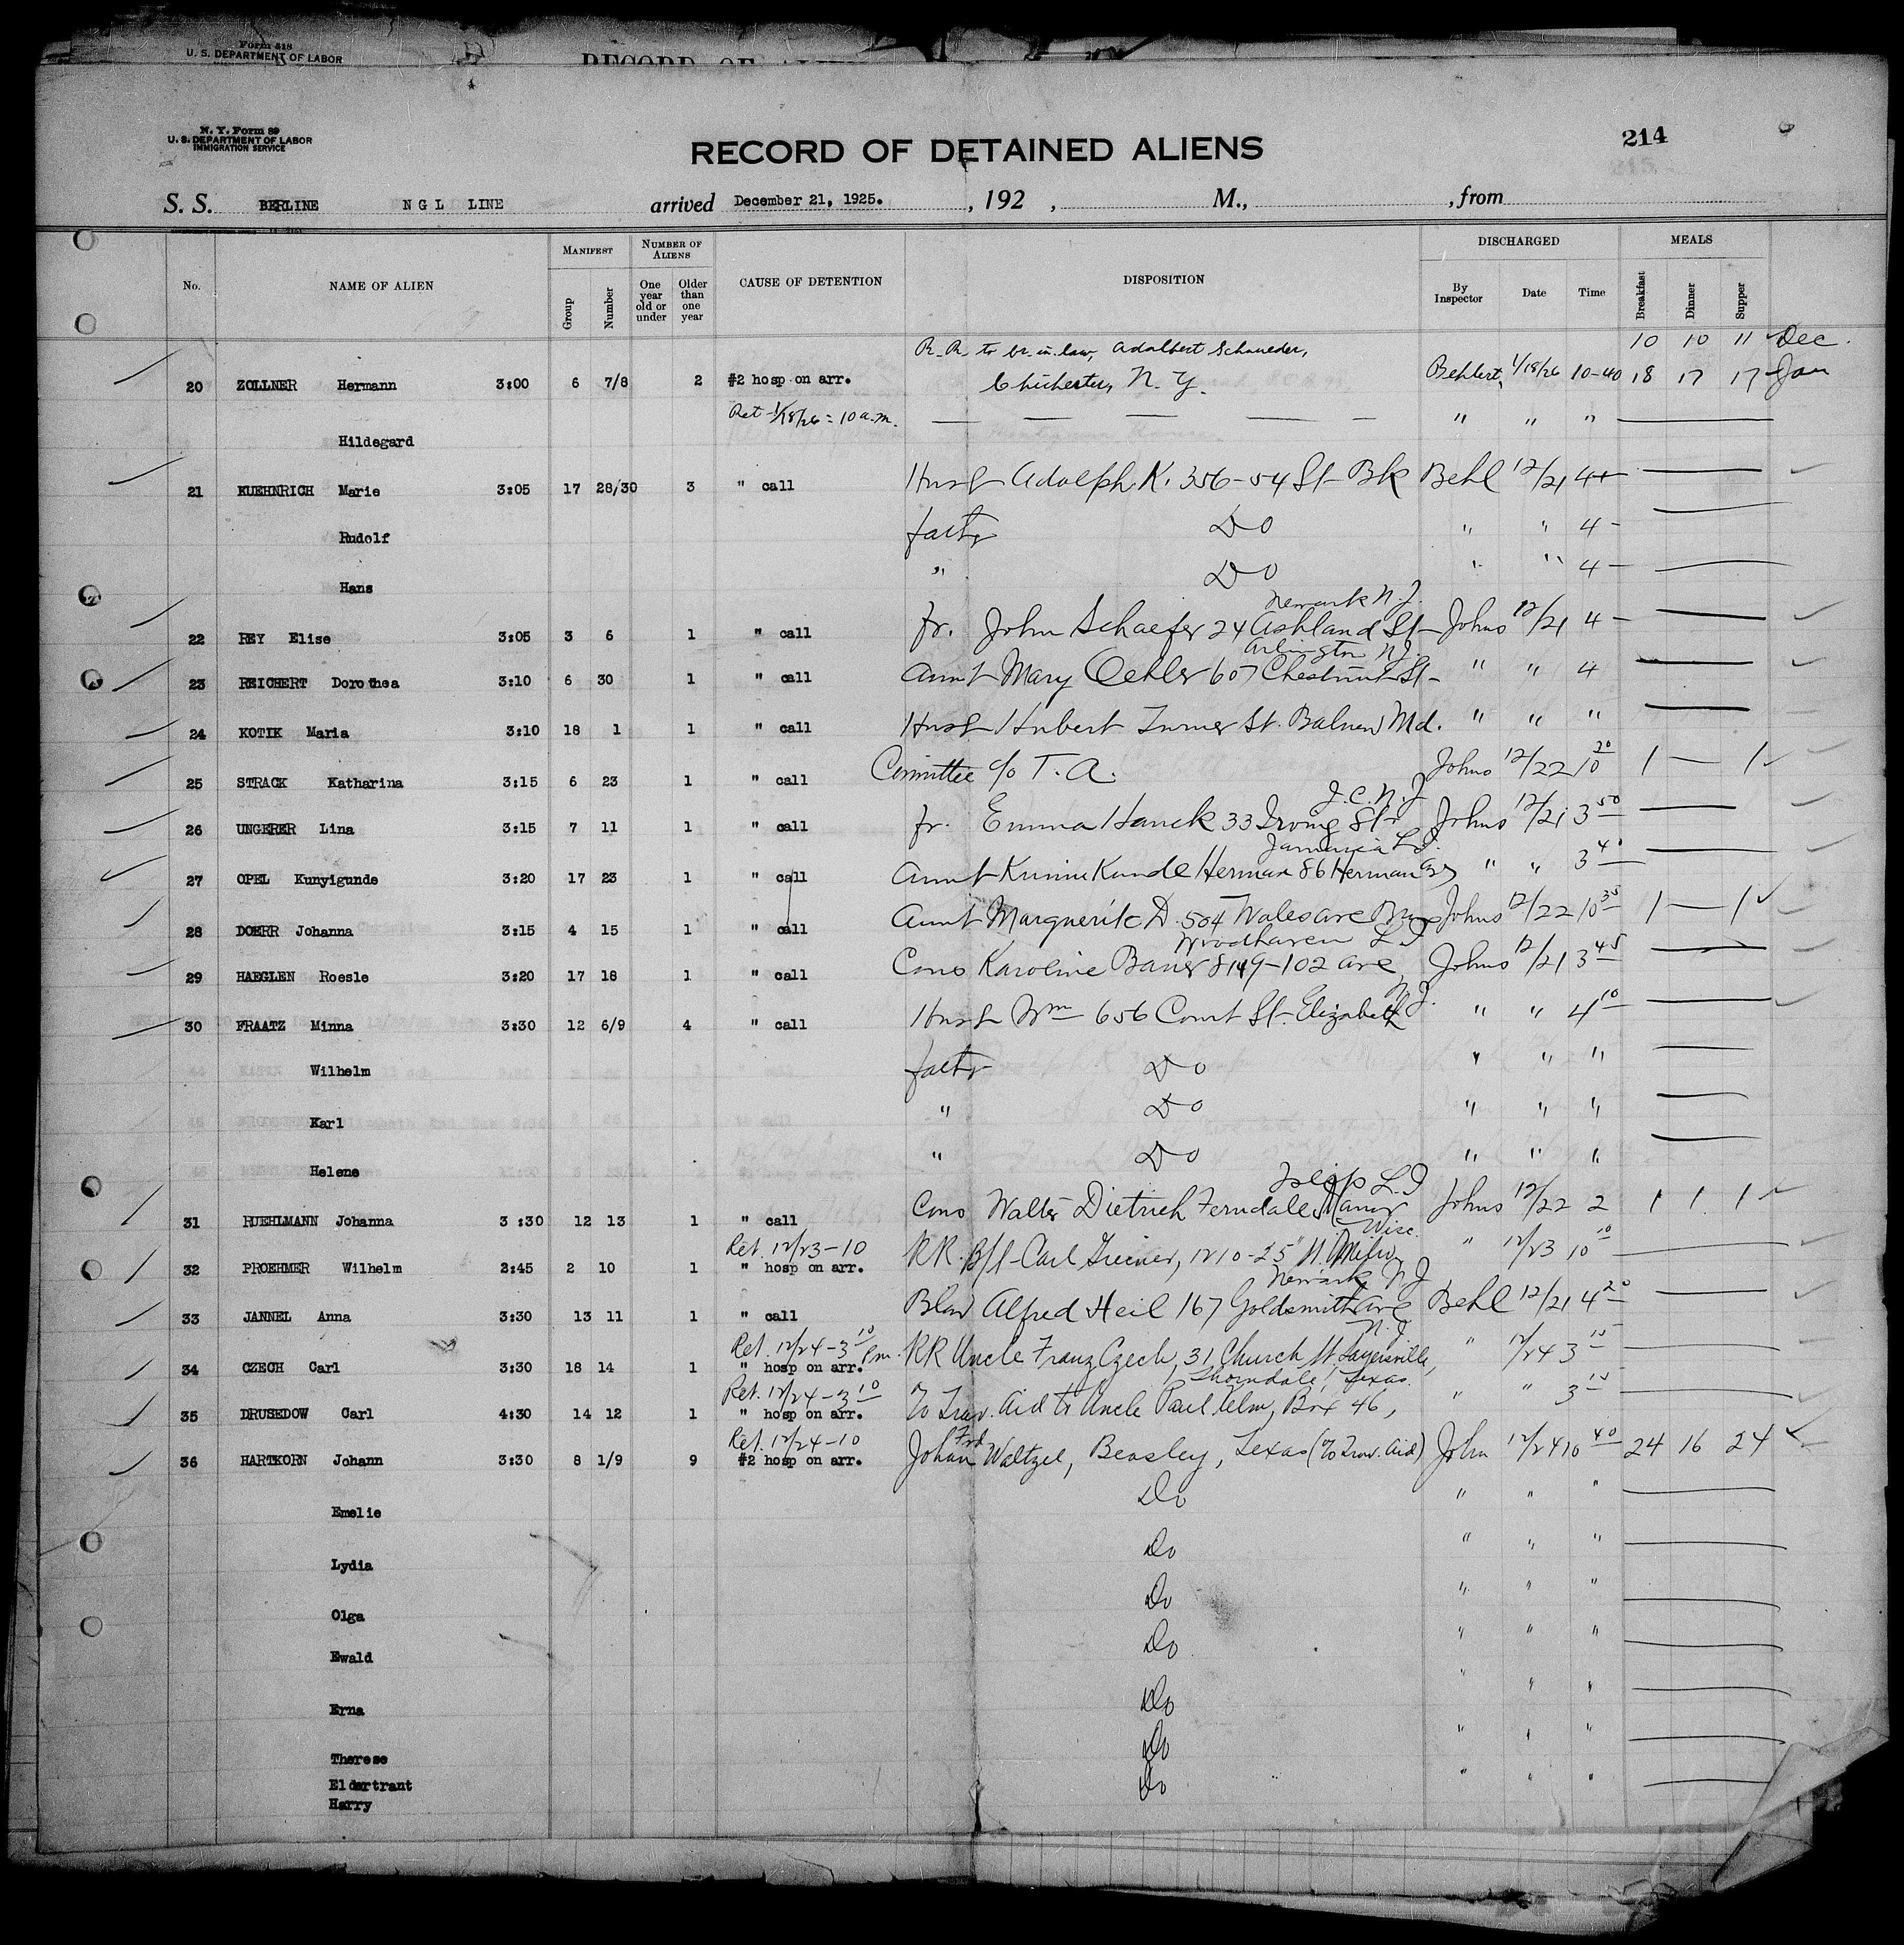 Form 518
U. S. DEPARTMENT OF LABOR
N. Y. Form 89
U. S. DEPARTMENT OF LABOR
IMMIGRATION SERVICE
RECORD OF DETAINED ALIENS
214
S. S. BERLINE N G L LINE arrived December 21, 1925. , 192 , M., , from
No. NAME OF ALIEN MANIFEST Group Number NUMBER OF ALIENS One year old or under Older than one year CAUSE OF DETENTION DISPOSITION DISCHARGED By Inspector Date Time MEALS Breakfast Dinner Supper
R.R. to br. in. law, Adalbert Schaueder, 10 10 11 Dec.
20 ZOLLNER Hermann 3:00 6 7/8 2 #2 hosp on arr. Chichester, N.Y. Behlert, 1/18/26 10-40 18 17 17 Jan
Ret 1/18/26 = 10 a.m. — — — — — " " "
Hildegard
21 KUEHNRICH Marie 3:05 17 28/30 3 " call Husb Adolph K. 356-54 St Bk Behl 12/21 4
Rudolf father Do " " 4 -
Hans " Do " " 4 -
Newark N.J.
22 REY Elise 3:05 3 6 1 " call fr. John Schaefer 24 Ashland St Johns 12/21 4 -
Arlington NJ.
23 REICHERT Dorothea 3:10 6 30 1 " call Aunt Mary Oehler 607 Chestnut St- " " 4
24 KOTIK Maria 3:10 18 1 1 " call Husb Hubert Turner St. Md. " " "
25 STRACK Katharina 3:15 6 23 1 " call Committee c/o T. A. Johns 12/22 10 20 1 — 1
J.C.N.J
26 UNGERER Lina 3:15 7 11 1 " call fr. Emma Hauck 33 Irving St Johns 12/21 3 50
Jamaica L.I.
27 OPEL Kunyigunde 3:20 17 23 1 " call Aunt Kunde Herman 86 Herman Av " " 3 40
28 DOERR Johanna 3:15 4 15 1 " call Aunt Marguerite D. 504 Wales ave Johns 12/22 10 35 1 — 1
Woodhaven L I
29 HAEGLEN Roesle 3:20 17 18 1 " call Cons Karoline Bauer 8149-102 ave, Johns 12/21 3 45
N.J.
30 FRAATZ Minna 3:30 12 6/9 4 " call Husb Wm 656 Court St. Elizabeth " " 4 10
Wilhelm father Do " " "
Karl " Do " " "
Helene " Do " " "
Islip L.I
31 RUEHLMANN Johanna 3 :30 12 13 1 " call Cons Walter Dietrich Ferndale Manor Johns 12/22 2 1 1 1
Ret. 12/23-10 Wisc.
32 PROEHMER Wilhelm 2:45 2 10 1 " hosp on arr. RR. B/l- Carl Greiner, 1210-25" St. Milw " 12/23 10 10
Newark NJ
33 JANNEL Anna 3:30 13 11 1 " call Blaw Alfred Heil 167 Goldsmith ave Behl 12/21 4 20
Ret. 12/24-3 10 Pm. N.J.
34 CZECH Carl 3:30 18 14 1 " hosp on arr. RR Uncle Franz Czech, 31 Church St. Sayersville, " 12/24 3 15
Ret. 12/24-3 10 Thorndale, Texas.
35 DRUSEDOW Carl 4:30 14 12 1 " hosp on arr. c/o Trav. Aid to Uncle Paul Box 46, " " 3 15
Ret. 12/24-10 Frd
36 HARTKORN Johann 3:30 8 1/9 9 #2 hosp on arr. Johan Waltzel, Beasley, Texas (c/o Trav. Aid) John 12/24 10 40 24 16 24
Emelie Do " " "
Lydia Do " " "
Olga Do " " "
Ewald Do " " "
Erna Do " " "
Therese Do " " "
Eldertrant Do " " "
Harry